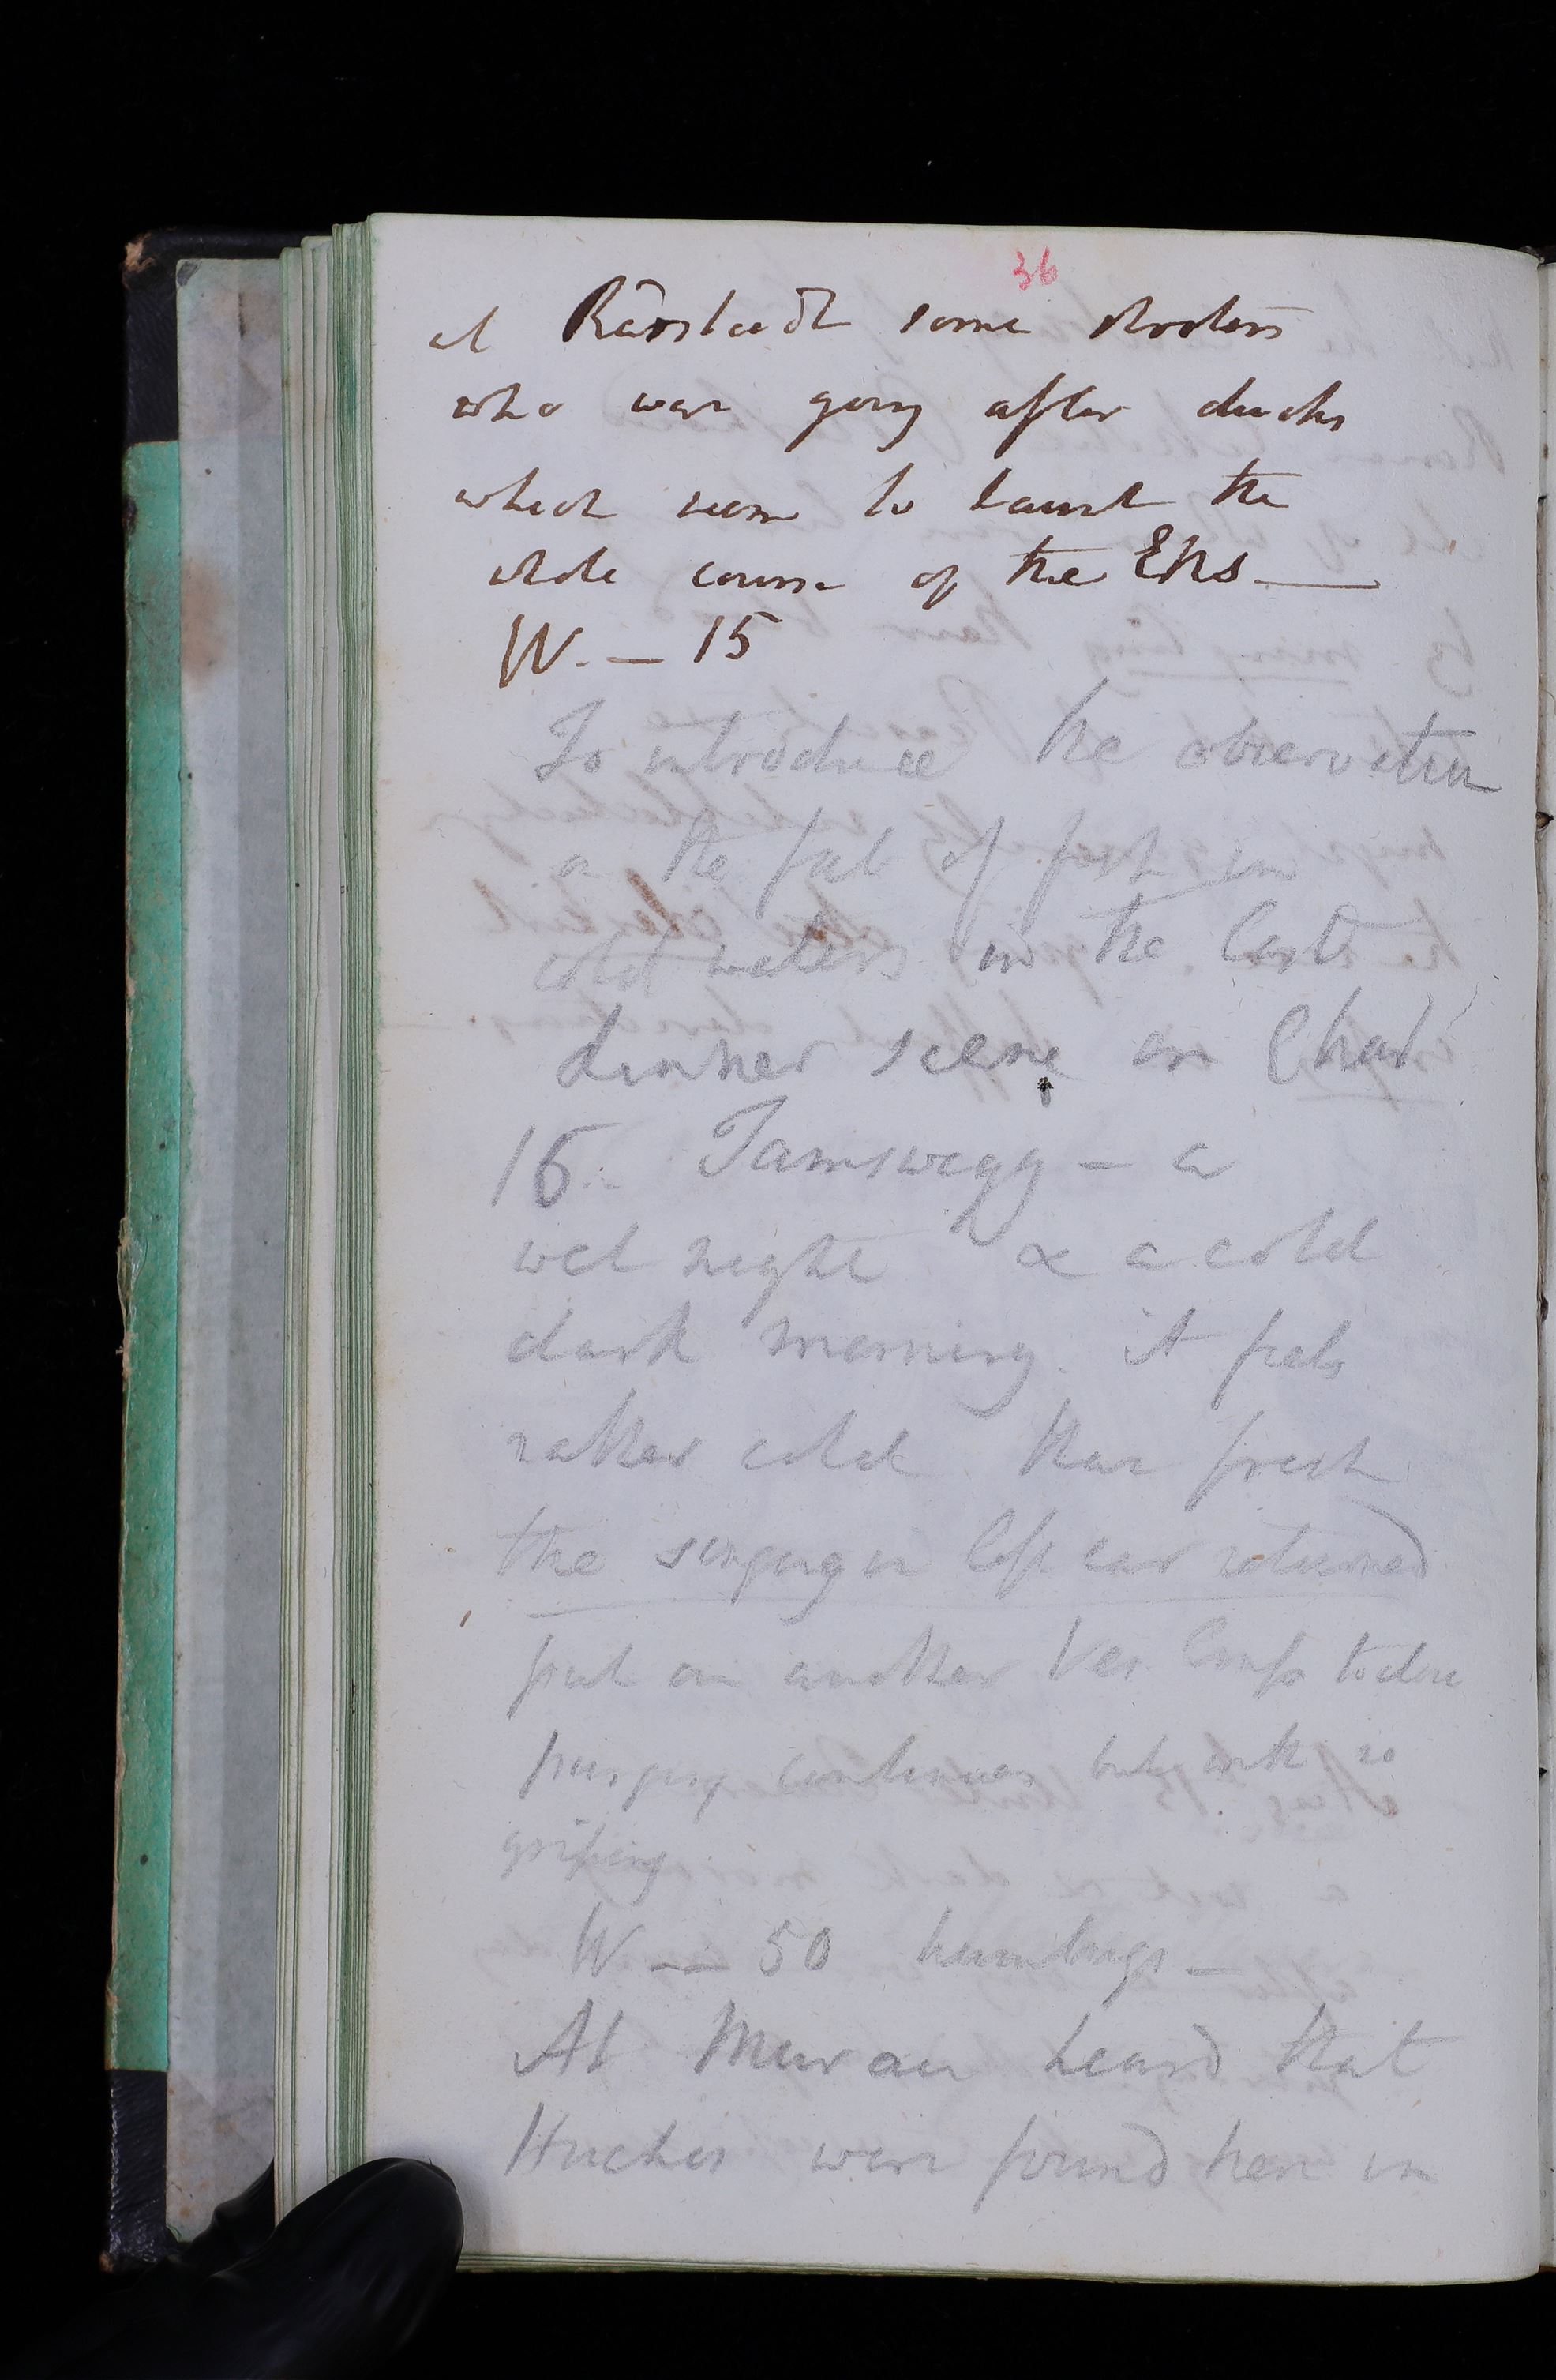 36
at Radstadt some shooters
who were going after ducks
which seem to haunt the
whole course of the ENS
W. — 15
To introduce the observation
on the fal of fish in
cold waters in the last
dinner scene on Char
16. Tamswegg — a
wet night & a cold
dark morning. it feels
rather cold than fresh
the singing in left ear returned
put on another Ves. Comp to close
purging continues but with no
griping
W — 50 humbugs —
At Murau heard that
Huchos were found here in